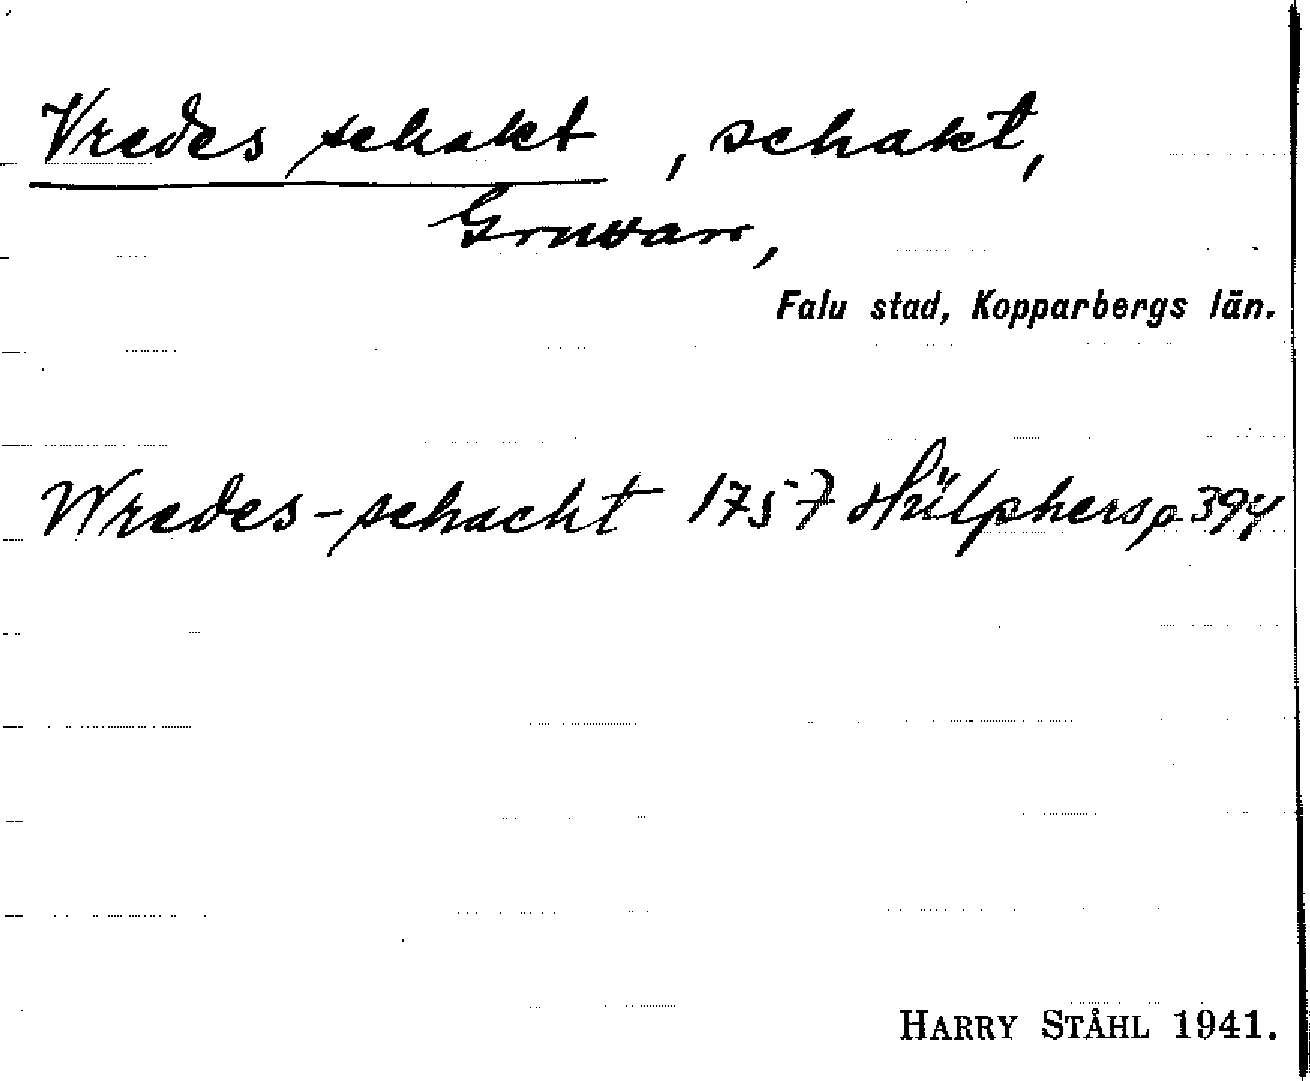 Vredes schakt, schakt,
Gruvan,
Falu stad, Kopparbergs län.
Wredes-schacht 1757 Hülphers p 394
HARRY STÅHL 1941.